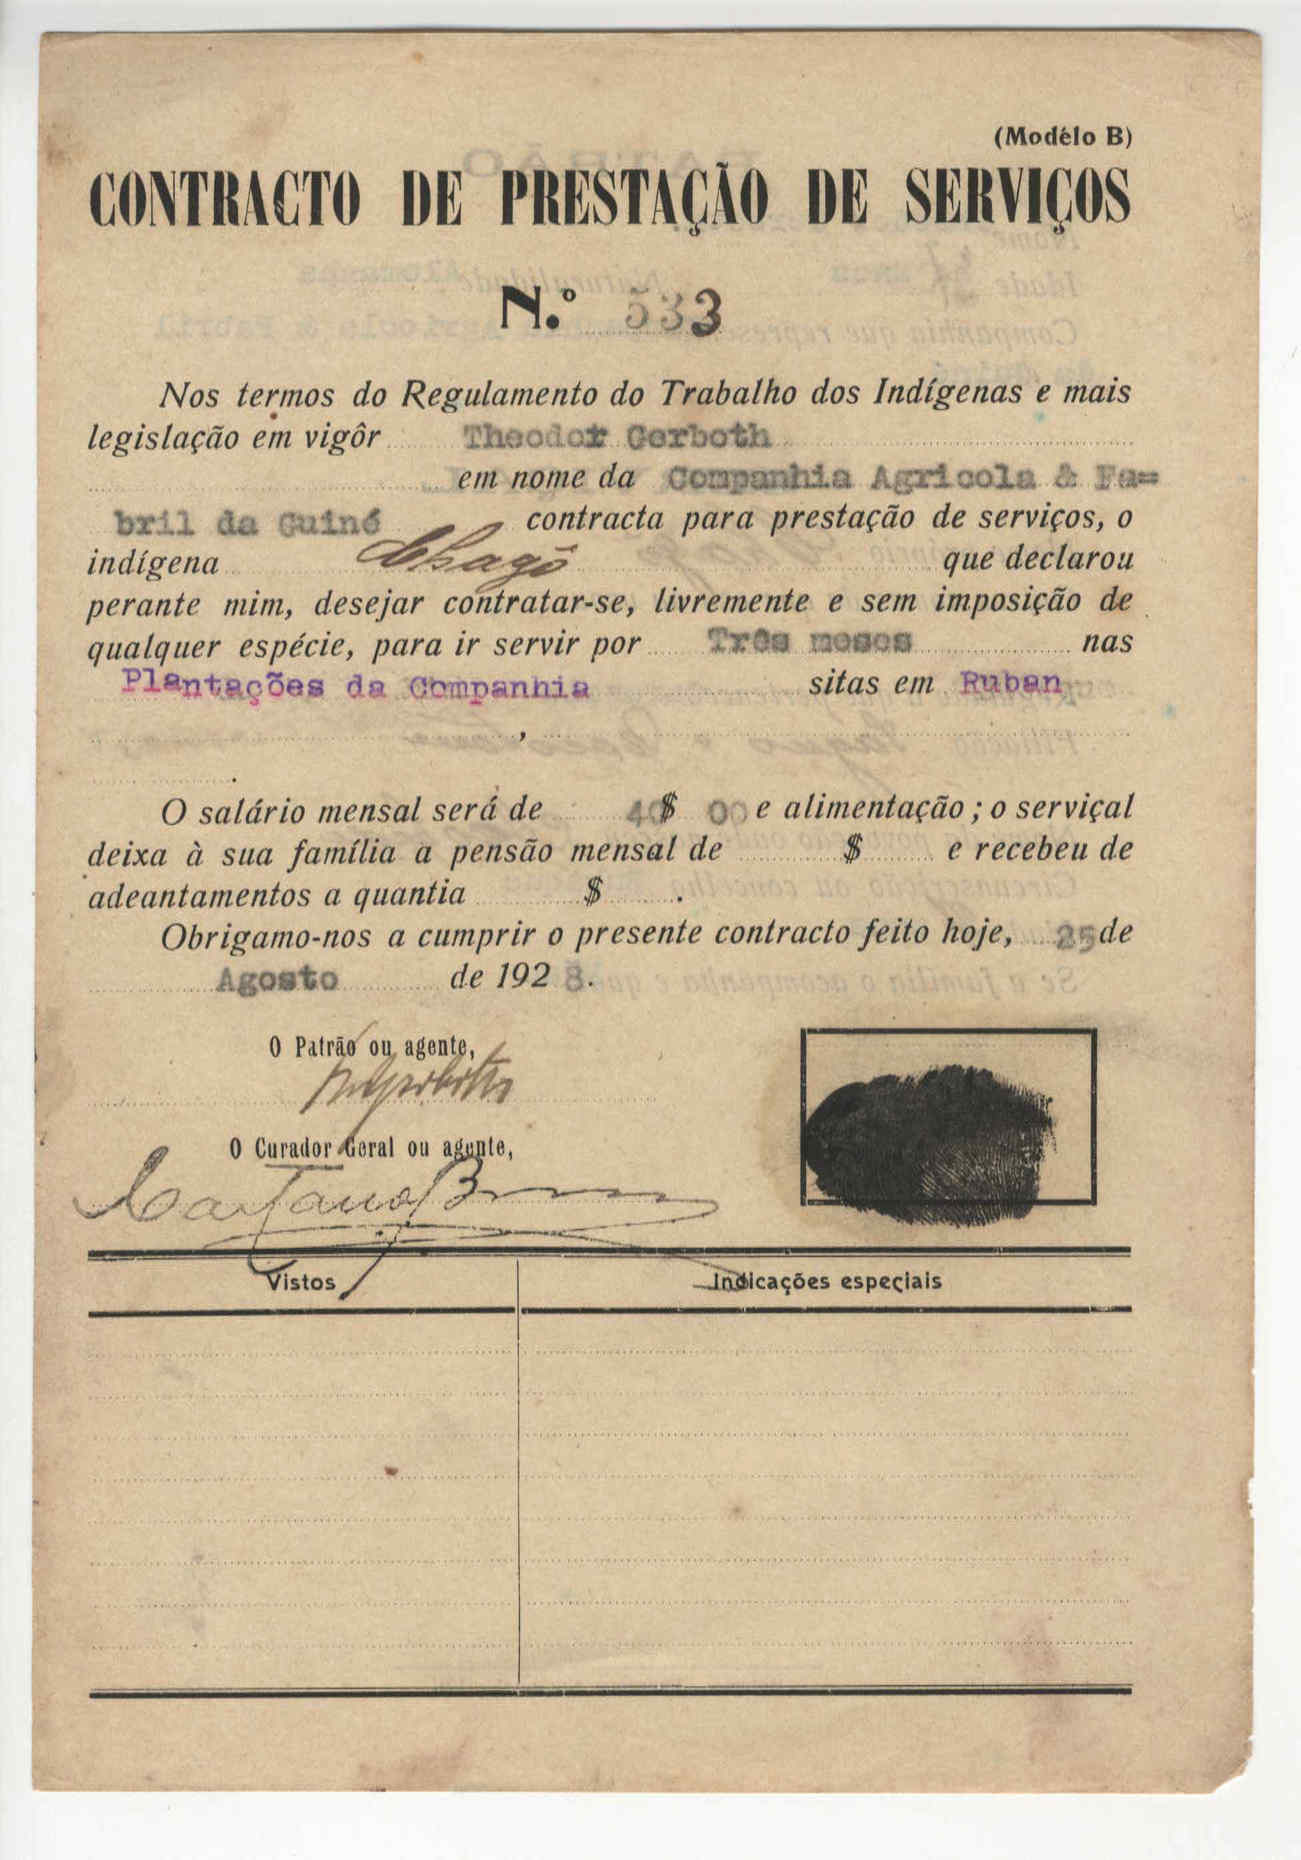 (Modélo B)
CONTRACTO DE PRESTAÇÃO DE SERVIÇOS
N.º 533
Nos termos do Regulamento do Trabalho dos Indígenas e mais
legislação em vigôr Theodor Gerboth
em nome da Companhia Agricola & Fa=
bril da Guiné contracta para prestação de serviços, o
indígena que declarou
perante mim, desejar contratar-se, livremente e sem imposição de
qualquer espécie, para ir servir por Três meses nas
Plantações da Companhia sitas em Ruban
,
.
O salário mensal será de 40$ 00 e alimentação; o serviçal
deixa à sua família a pensão mensal de $ e recebeu de
adeantamentos a quantia $ .
Obrigamo-nos a cumprir o presente contracto feito hoje, 25 de
Agosto de 1928.
O Patrão ou agente,
O Curador Geral ou agente,
Vistos
Indicações especiais